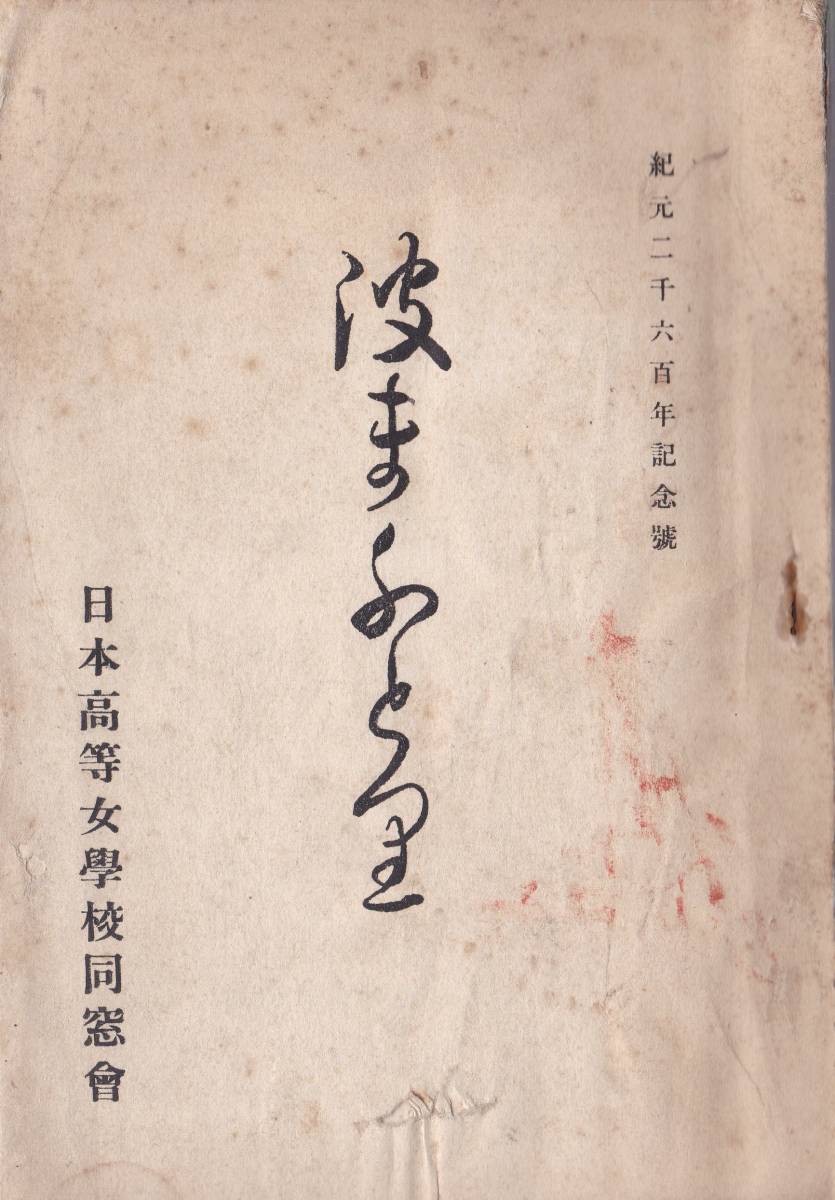 紀元二千六百年記念號
波ま千と里
日本高等女學校同窓會